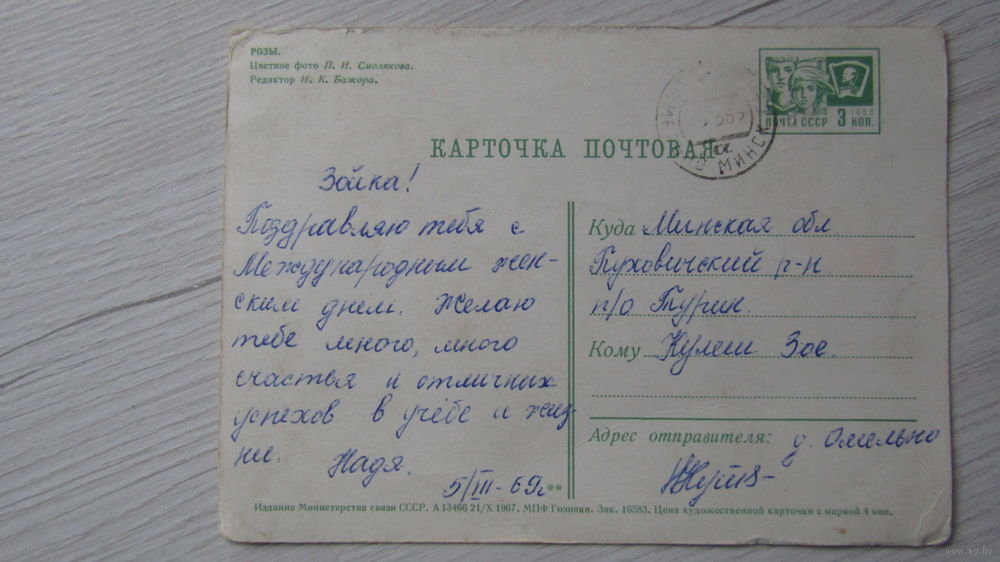 РОЗЫ.
Цветное фото П. И. Смолякова.
Редактор И. К. Бажора.
1966
ПОЧТА СССР 3 КОП.
МИНСК
КАРТОЧКА ПОЧТОВАЯ
Зойка!
Поздравляю тебя с
Международным жен-
ским днем. Желаю
тебе много, много
счастья и отличных
успехов в учёбе и жиз-
ни. Надя.
5/III-69г.
**
Куда Минская обл
Пуховичский р-н
п/о Турин.
Кому Кулеш Зое.
Адрес отправителя: д. Омельно
Издание Министерства связи СССР. А 13466 21/X 1967. МПФ Гознака. Зак. 16583. Цена художественной карточки с маркой 4 коп.
www.ay.by